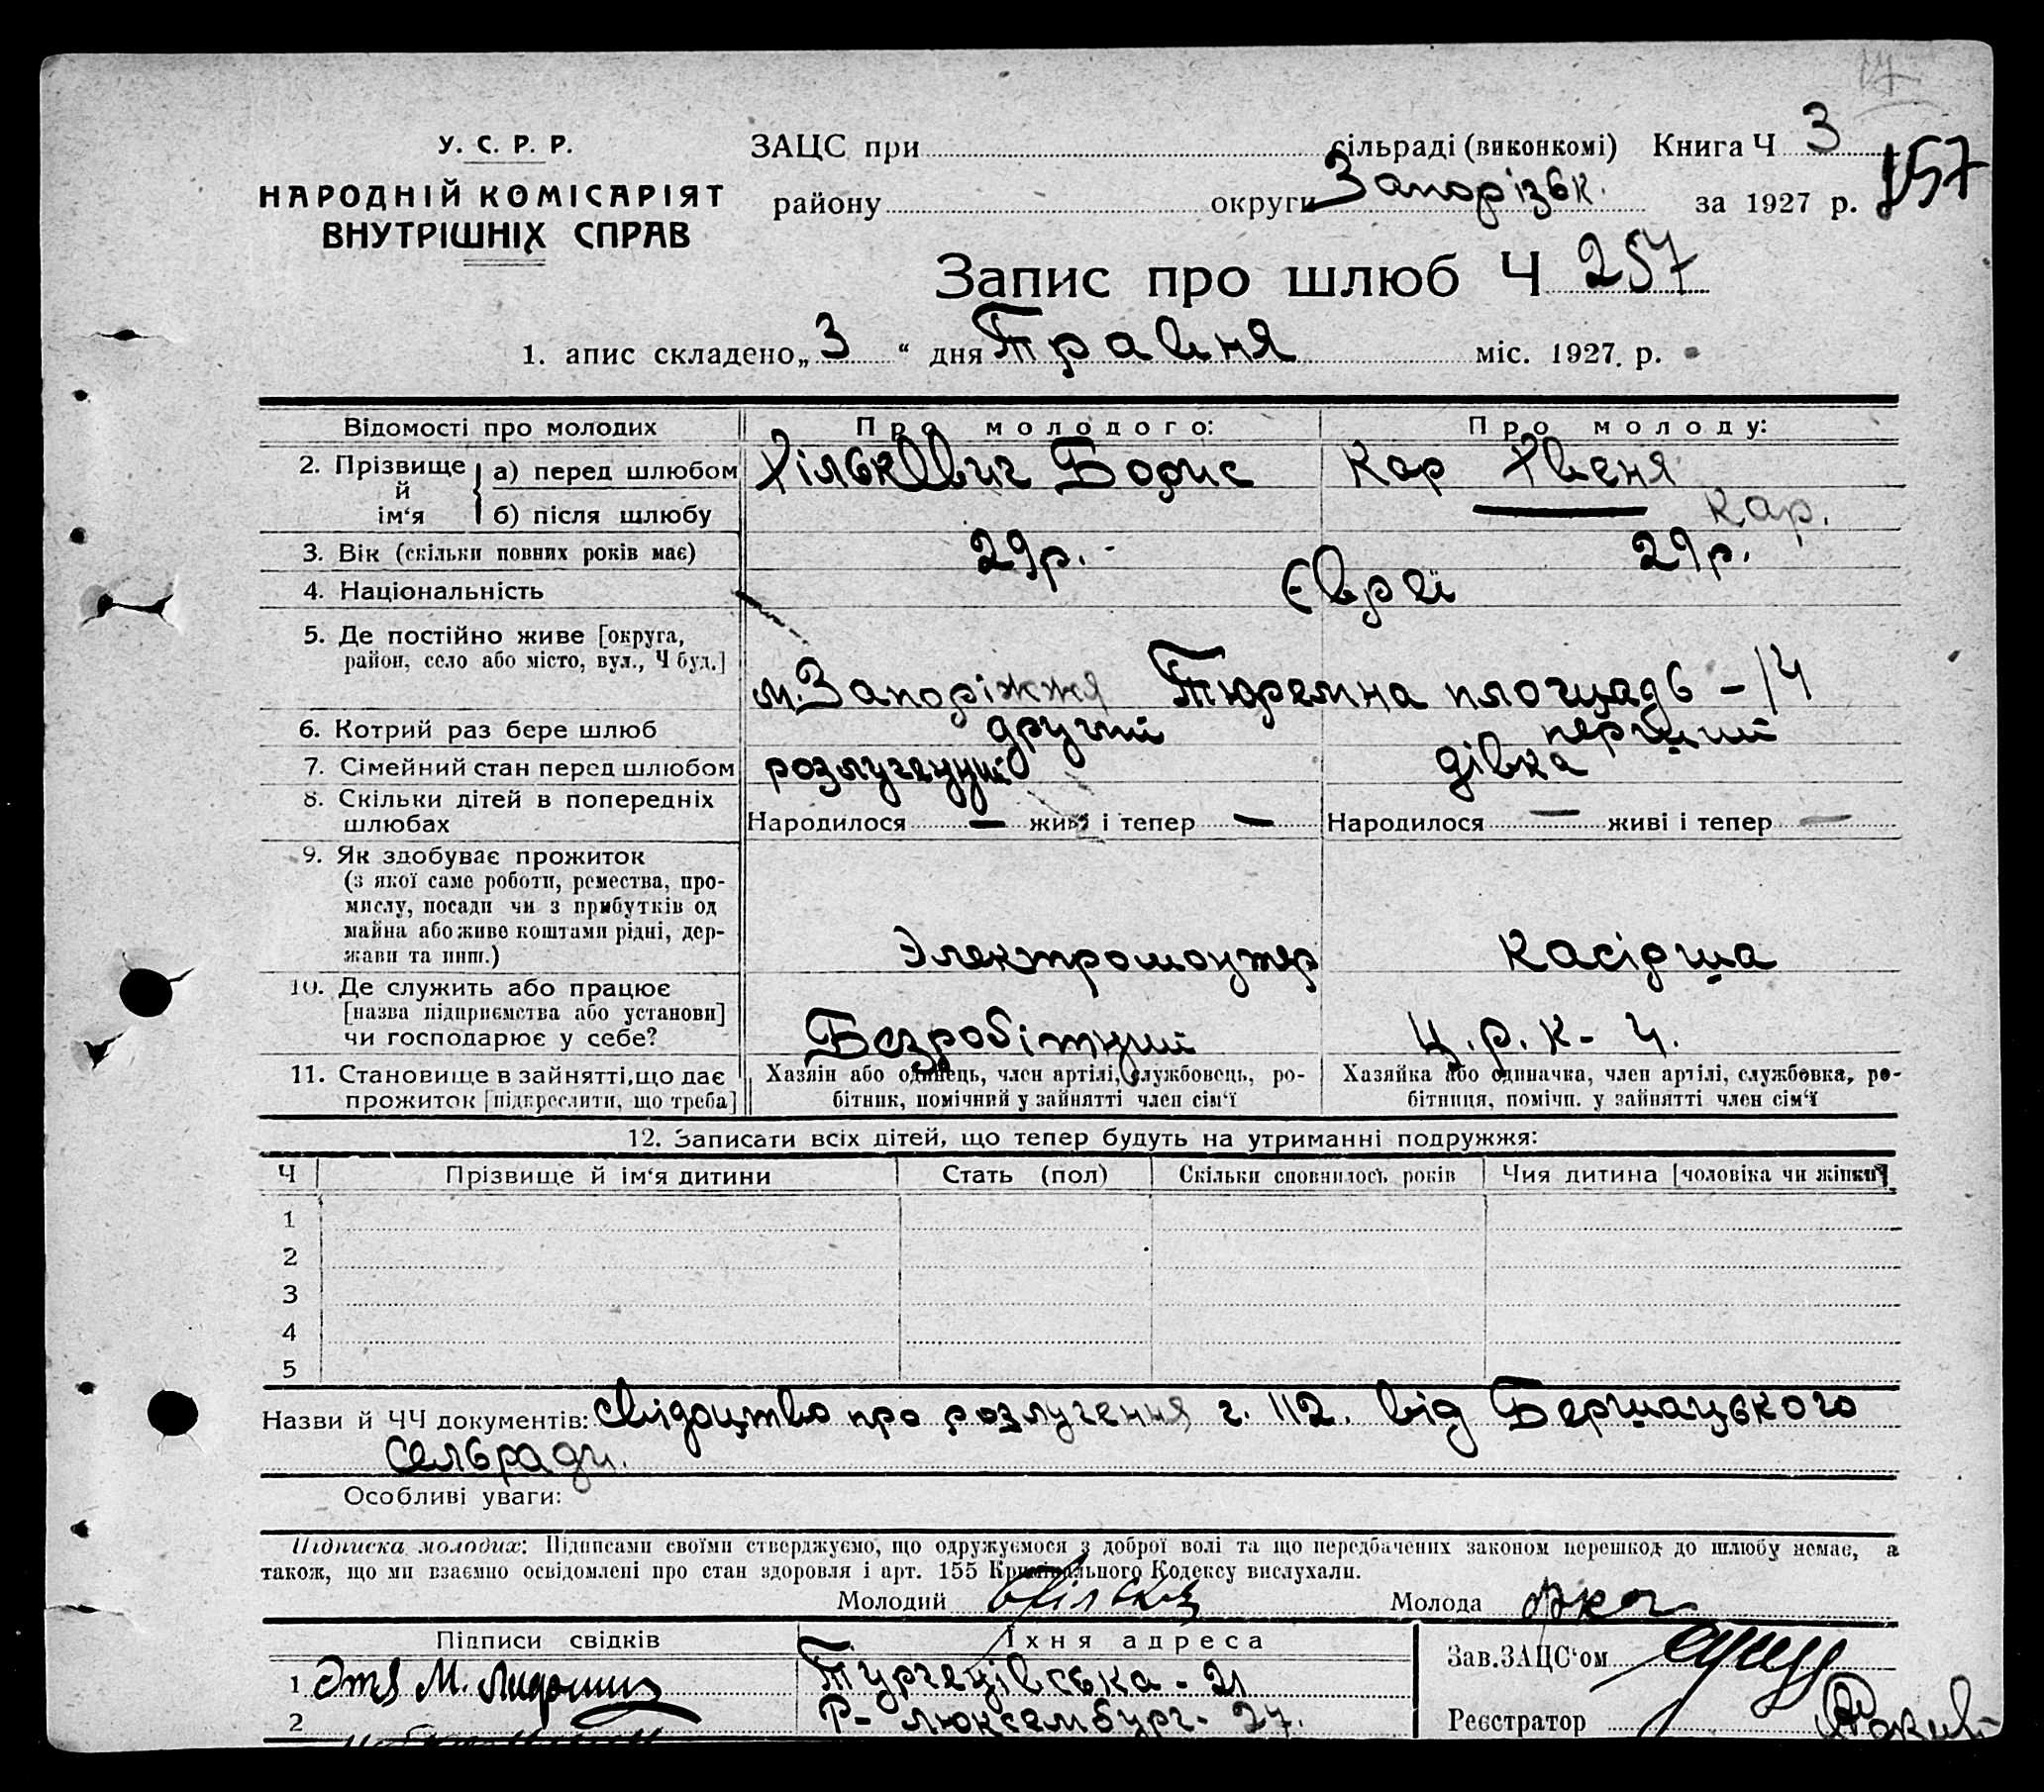 У. С. Р. Р.
НАРОДНІЙ КОМІСАРІЯТ
ВНУТРІШНІХ СПРАВ
ЗАЦС при сільраді (виконкомі) Книга Ч 3
району округи Запорізьк. за 1927 р. 157
Запис про шлюб Ч 257
1. апис складено „3“ дня Травня міс. 1927. р.
Відомості про молодих Про молодого: Про молоду:
2. Прізвище й ім‘я а) перед шлюбом Хількевич Борис Кар Хвеня
б) після шлюбу — Кар.
3. Вік (скільки повних років має) 29 р. - 29 р.
4. Національність Євреї
5. Де постійно живе [округа,
район, село або місто, вул., Ч буд.] м. Запоріжжя Тюремна площадь – 14
6. Котрий раз бере шлюб другий перший
7. Сімейний стан перед шлюбом розлучений дівка
8. Скільки дітей в попередніх
шлюбах Народилося — живі і тепер — Народилося — живі і тепер —
9. Як здобуває прожиток
(з якої саме роботи, ремества, про-
мислу, посади чи з прибутків од
майна або живе коштами рідні, дер-
жави та инш.) Электромонтер Касірша
10. Де служить або працює
[назва підприємства або установи]
чи господарює у себе? Безробітний Ц.р.к - 4.
11. Становище в зайнятті, що дає
прожиток [підкреслити, що треба]
Хазяін або одинець, член артілі, службовець, ро-
бітник, помічний у зайнятті член сім‘ї
Хазяйка або одиначка, член артілі, службовка, ро-
бітниця, помічн. у зайнятті член сім‘ї
12. Записати всіх дітей, що тепер будуть на утриманні подружжя:
Ч Прізвище й ім‘я дитини Стать (пол) Скільки сповнилось років Чия дитина [чоловіка чи жінки]
1
2
3
4
5
Назви й ЧЧ документів: свідоцтво про розлучення ч. 112. від Бершацького
сельради.
Особливі уваги:
Підписка молодих: Підписами своїми стверджуємо, що одружуємося з доброї волі та що передбачених законом перешкод до шлюбу немає, а
також, що ми взаємно освідомлені про стан здоровля і арт. 155 Кримінального Кодексу вислухали.
Молодий Молода
Підписи свідків Їхня адреса Зав. ЗАЦС‘ом
1 М. Тургенівська - 21
2 Р- люксембург - 27. Реєстратор